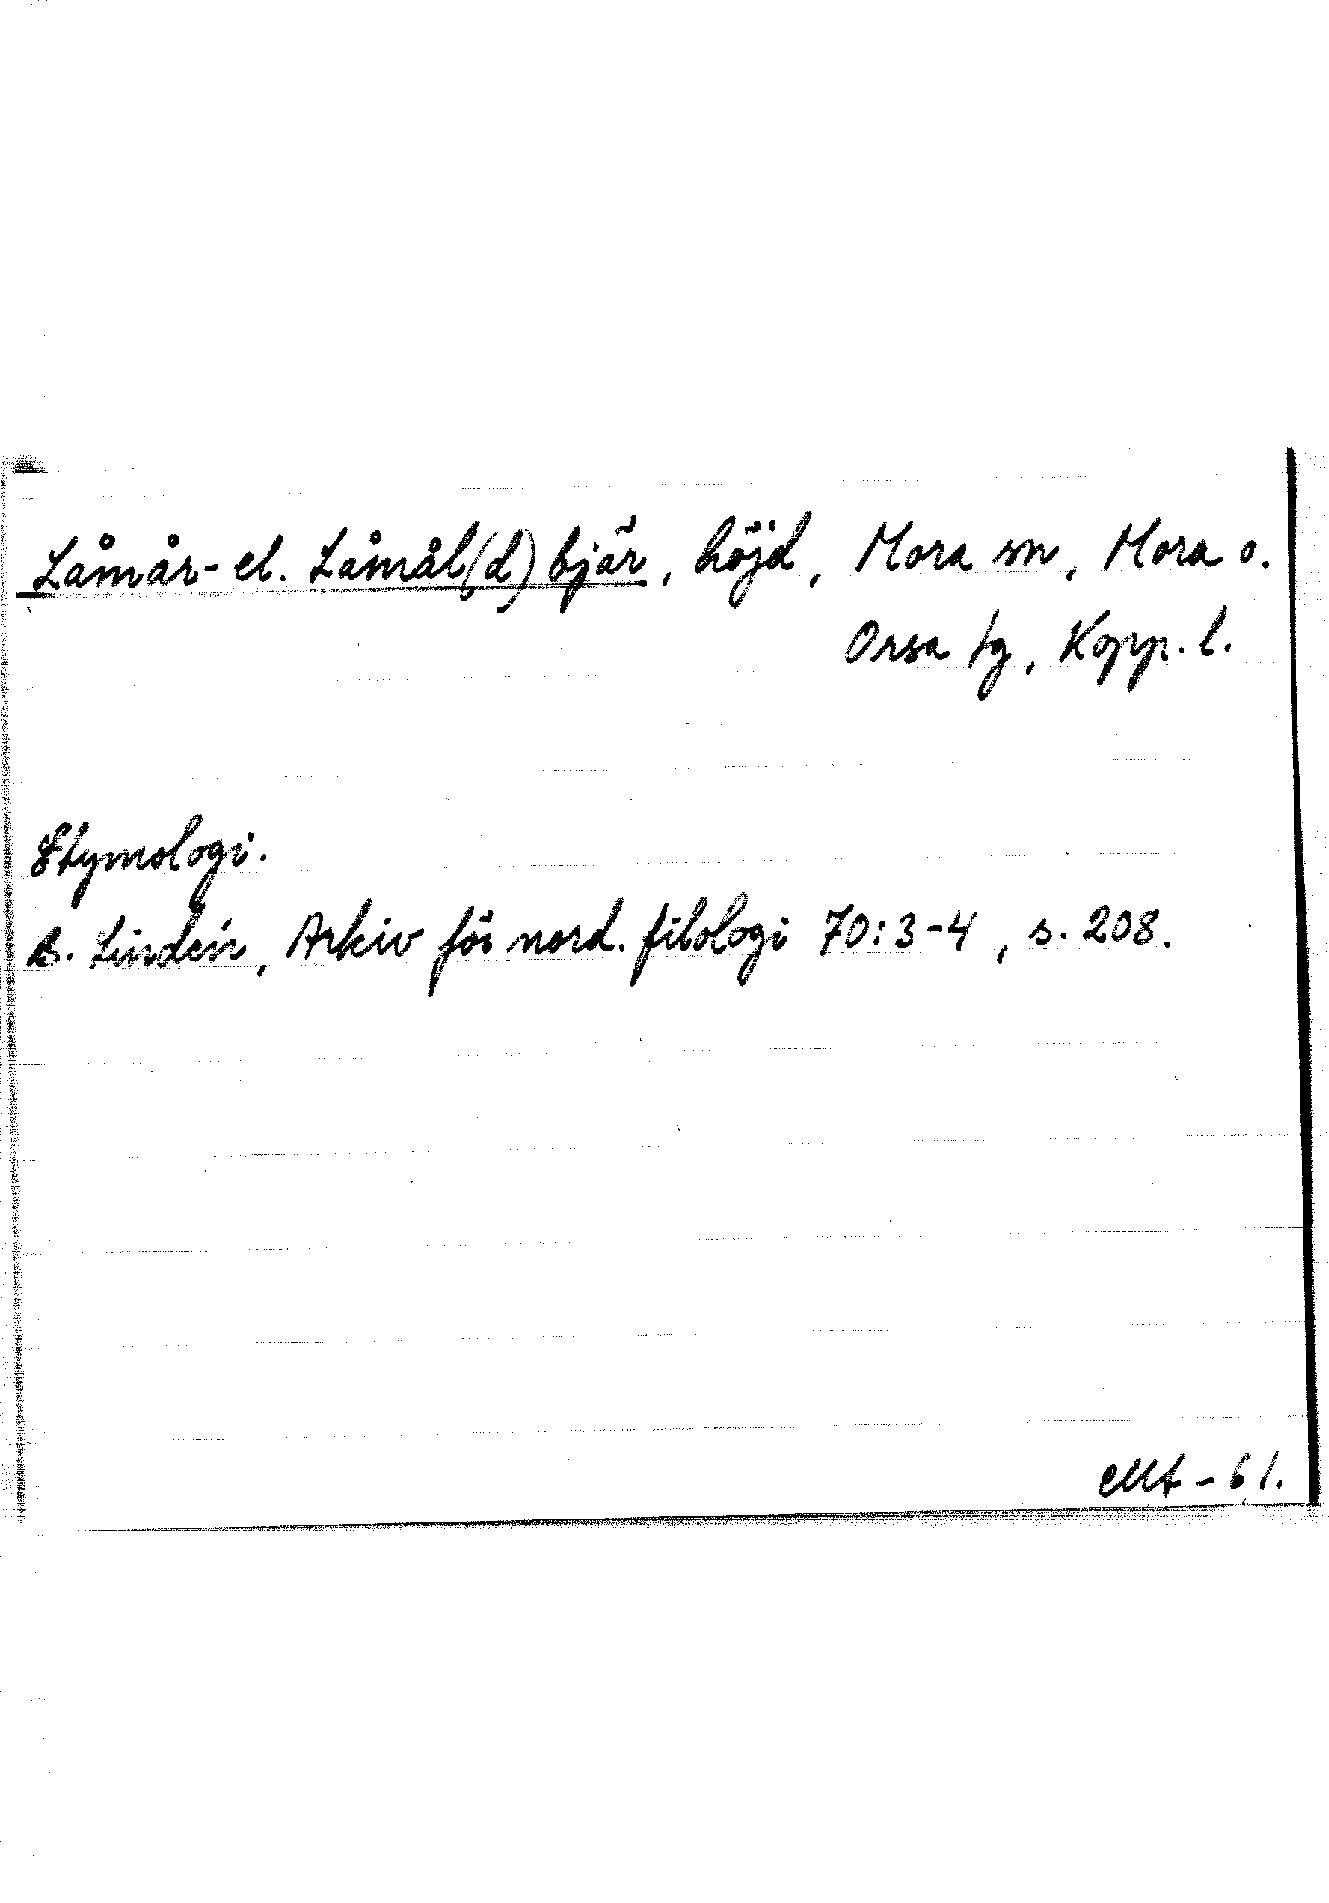 Låmår- el. Låmål(d)bjär, höjd, Mora sn, Mora o.
Orsa tg, Kopp. l.
Etymologi.
B. Lindén, Arkiv för nord. filologi 70:3-4, s. 208.
Mt - 61.